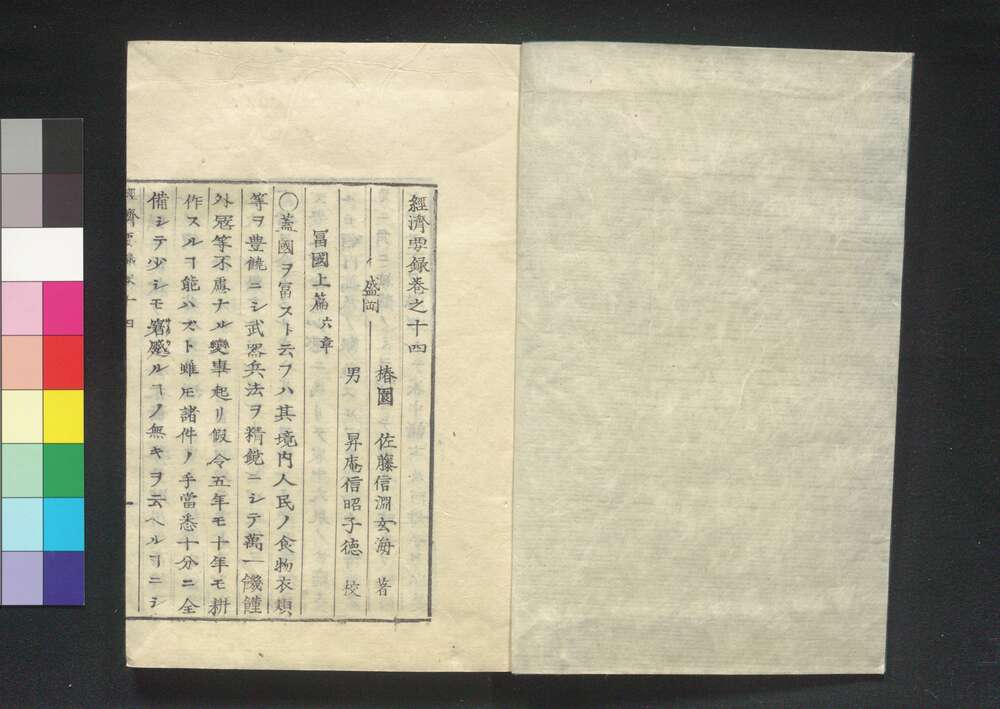 經濟要録巻之十四
椿園 佐藤信淵玄海 著
盛岡
男 昇庵信昭子徳 校
冨國上篇六章
〇蓋國ヲ冨スト云フハ其境内人民ノ食物衣類
等ヲ豊饒ニシ武器兵法ヲ精鋭ニシテ萬一饑饉
外冦等不慮ナル變事起リ假令五年モ十年モ耕
作スルヿ能ハズト雖モ諸件ノ手當悉十分ニ全
備シテ少シモ窘蹙ルヿノ無キヲ云ヘルヿニシ
經濟要録巻十四